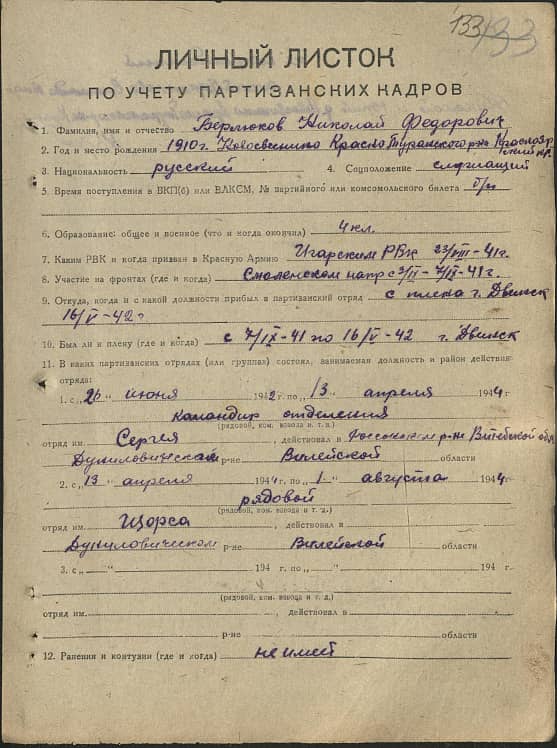 133/133
ЛИЧНЫЙ ЛИСТОК
ПО УЧЕТУ ПАРТИЗАНСКИХ КАДРОВ
1. Фамилия, имя и отчество Берлюков Николай Федорович
2. Год и место рождения 1910г. Красно Туранского р-на
3. Национальность русский 4. Соцположение служащий
5. Время поступления в ВКП(б) или ВЛКСМ, № партийного или комсомольского билета б/п
6. Образование: общее и военное (что и когда окончил) 4 кл.
7. Каким РВК и когда призван в Красную Армию Игарским РВК 23/VIII-41г.
8. Участие на фронтах (где и когда) Смоленском напр с 3/IX-7/IX-41г.
9. Откуда, когда и с какой должности прибыл в партизанский отряд с плена г. Двинск
16/V-42г
10. Был ли в плену (где и когда) с 7/IX-41 по 16/V-42 г. Двинск
11. В каких партизанских отрядах (или группах) состоял, занимаемая должность и район действия
отряда:
1. с „26" июня 1942 г. по „13" апреля 1944 г
командир отделения
(рядовой, ком. взвода и т. д.)
отряд им. Сергея, действовал в р-не Витебской обл
р-не Вилейской области
2. с „13" апреля 1944 г. по „1" августа 1944 г.
рядовой
(рядовой, ком. взвода и т. д.)
отряд им. Щорса, действовал в
Дуниловичском р-не Вилейской области
3. с „ " 194 г. по „ " 194 г.
(рядовой, ком. взвода и т. д.)
отряд им., действовал в
р-не области
12. Ранения и контузии (где и когда) не имел